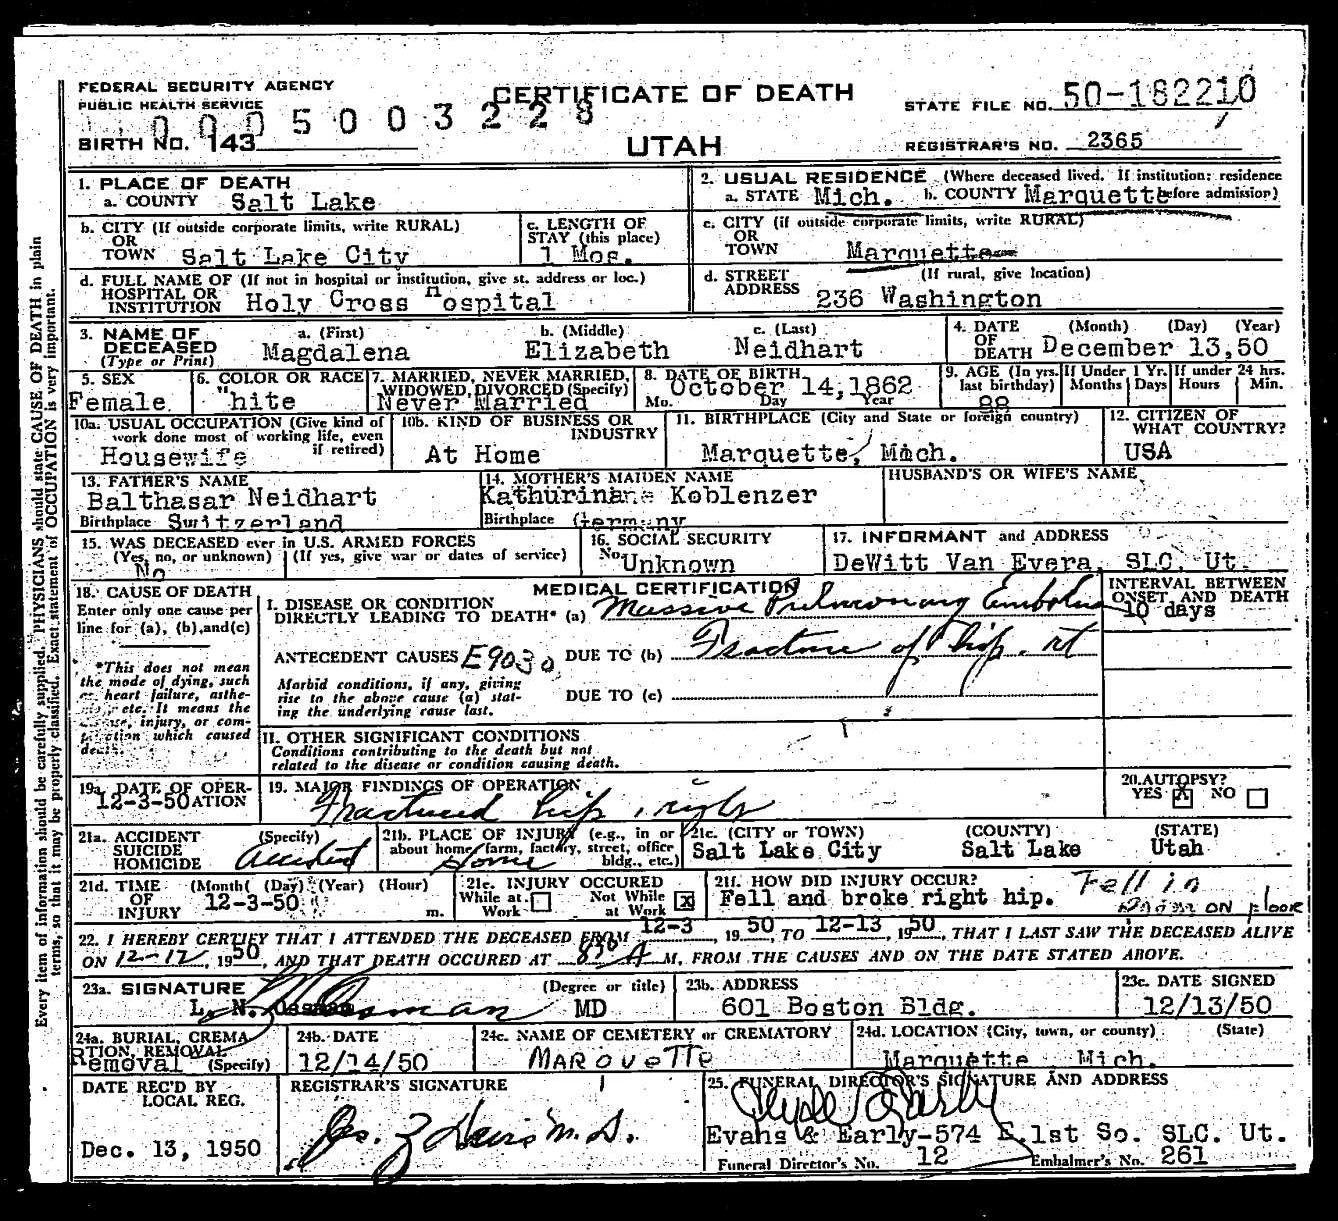 FEDERAL SECURITY AGENCY
PUBLIC HEALTH SERVICE
0005003228
BIRTH NO. 143
CERTIFICATE OF DEATH
UTAH
STATE FILE NO. 50-182210
REGISTRAR'S NO. 2365
1. PLACE OF DEATH
a. COUNTY Salt Lake
2. USUAL RESIDENCE (Where deceased lived. If institution: residence
a. STATE Mich. b. COUNTY Marquette before admission)
b. CITY (If outside corporate limits, write RURAL)
OR
TOWN Salt Lake City
c. LENGTH OF
STAY (this place)
1 Mos.
c. CITY (if outside corporate limits, write RURAL)
OR
TOWN Marquette
d. FULL NAME OF (If not in hospital or institution, give st. address or loc.)
HOSPITAL OR
INSTITUTION Holy Cross Hospital
d. STREET (If rural, give location)
ADDRESS 236 Washington
3. NAME OF
DECEASED
(Type or Print)
a. (First) b. (Middle) c. (Last)
Magdalena Elizabeth Neidhart
4. DATE (Month) (Day) (Year)
OF
DEATH December 13,50
5. SEX
Female
6. COLOR OR RACE
White
7. MARRIED, NEVER MARRIED,
WIDOWED, DIVORCED (Specify)
Never Married
8. DATE OF BIRTH
October 14,1862
Mo. Day Year
9. AGE (In yrs.
last birthday)
88
If Under 1 Yr.
Months Days
If under 24 hrs.
Hours Min.
10a. USUAL OCCUPATION (Give kind of
work done most of working life, even
if retired)
Housewife
10b. KIND OF BUSINESS OR
INDUSTRY
At Home
11. BIRTHPLACE (City and State or foreign country)
Marquette, Mich.
12. CITIZEN OF
WHAT COUNTRY?
USA
13. FATHER'S NAME
Balthasar Neidhart
Birthplace Switzerland
14. MOTHER'S MAIDEN NAME
Koblenzer
Birthplace Germany
HUSBAND'S OR WIFE'S NAME
15. WAS DECEASED ever in U.S. ARMED FORCES
(Yes, no, or unknown) (If yes, give war or dates of service)
No
16. SOCIAL SECURITY
No. Unknown
17. INFORMANT and ADDRESS
DeWitt Van Evera, SLC, Ut.
18. CAUSE OF DEATH
Enter only one cause per
line for (a), (b), and (c)
*This does not mean
the mode of dying, such
as heart failure, asthe-
nia, etc. It means the
disease, injury, or com-
plication which caused
death.
MEDICAL CERTIFICATION
I. DISEASE OR CONDITION
DIRECTLY LEADING TO DEATH* (a) Massive Pulmonary Embolus
INTERVAL BETWEEN
ONSET AND DEATH
10 days
ANTECEDENT CAUSES E9030 DUE TO (b) Fracture of hip, rt
Morbid conditions, if any, giving
rise to the above cause (a) stat-
ing the underlying cause last.
DUE TO (c)
II. OTHER SIGNIFICANT CONDITIONS
Conditions contributing to the death but not
related to the disease or condition causing death.
19a. DATE OF OPER-
ATION
12-3-50
19. MAJOR FINDINGS OF OPERATION
Fractured hip, right
20. AUTOPSY?
YES X NO
21a. ACCIDENT (Specify)
SUICIDE
HOMICIDE
accident
21b. PLACE OF INJURY (e.g., in or
about home, farm, factory, street, office
bldg., etc.)
Home
21c. (CITY or TOWN) (COUNTY) (STATE)
Salt Lake City Salt Lake Utah
21d. TIME (Month) (Day) (Year) (Hour)
OF
INJURY 12-3-50 m.
21e. INJURY OCCURED
While at Work Not While at Work X
21f. HOW DID INJURY OCCUR?
Fell and broke right hip. Fell in
Room on floor
22. I HEREBY CERTIFY THAT I ATTENDED THE DECEASED FROM 12-3, 1950 TO 12-13, 1950, THAT I LAST SAW THE DECEASED ALIVE
ON 12-12, 1950, AND THAT DEATH OCCURED AT 830 A M, FROM THE CAUSES AND ON THE DATE STATED ABOVE.
23a. SIGNATURE (Degree or title)
L. N. Ossman MD
23b. ADDRESS
601 Boston Bldg.
23c. DATE SIGNED
12/13/50
24a. BURIAL, CREMA-
TION, REMOVAL
Removal (Specify)
24b. DATE
12/14/50
24c. NAME OF CEMETERY or CREMATORY
MARQUETTE
24d. LOCATION (City, town, or county) (State)
Marquette Mich.
DATE REC'D BY
LOCAL REG.
Dec. 13, 1950
REGISTRAR'S SIGNATURE
25. FUNERAL DIRECTOR'S SIGNATURE AND ADDRESS
Clyde Early
Evans & Early-574 E.1st So. SLC. Ut.
Funeral Director's No. 12 Embalmer's No. 261
Every item of information should be carefully supplied. PHYSICIANS should state CAUSE OF DEATH in plain
terms, so that it may be properly classified. Exact statement of OCCUPATION is very important.